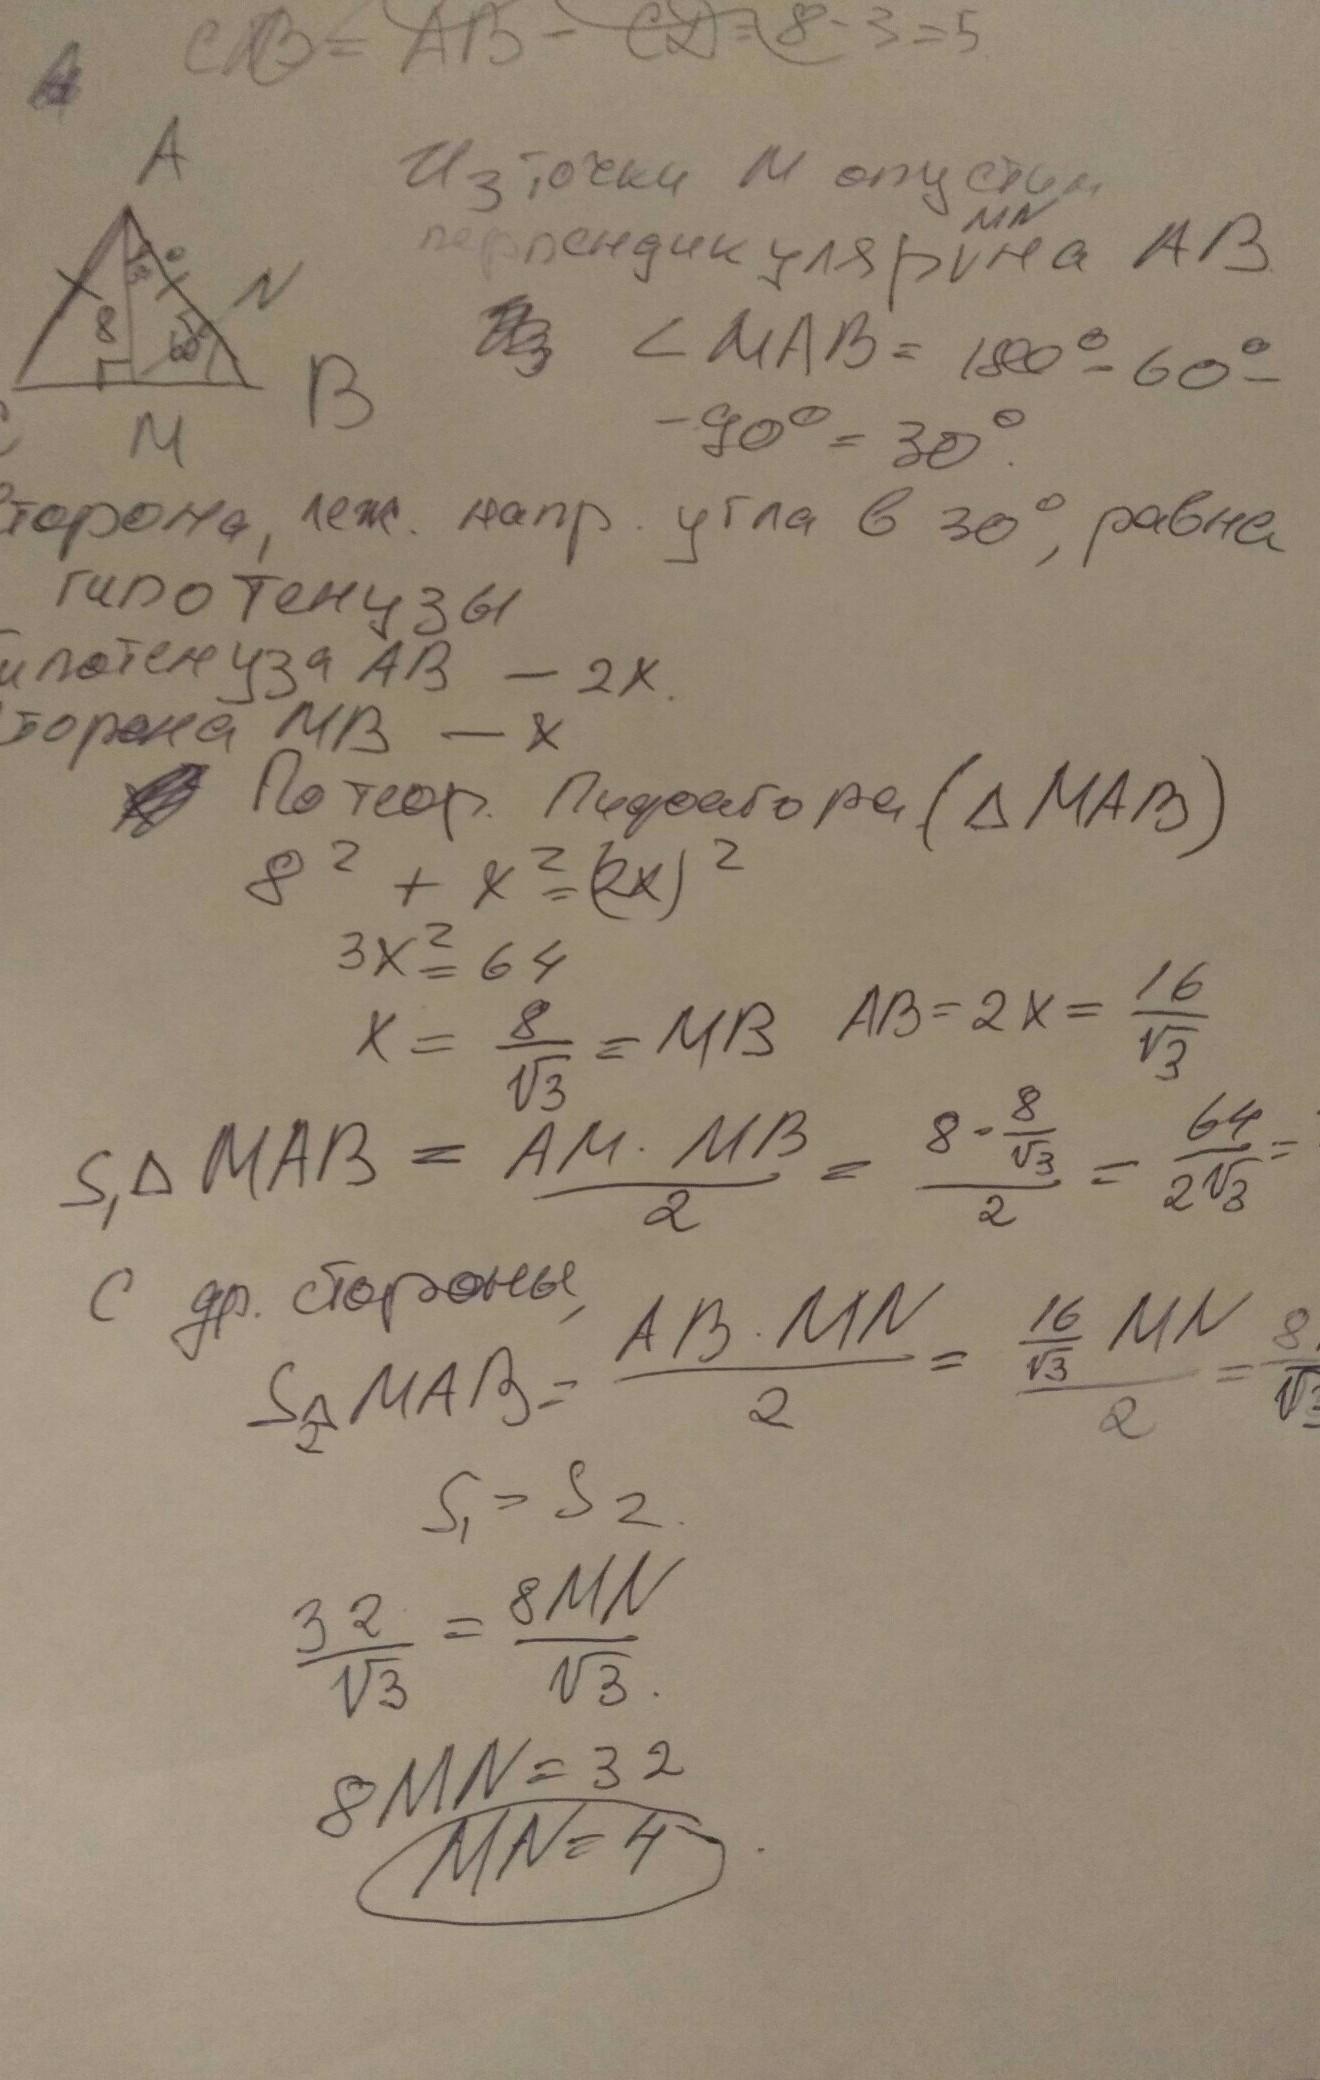 CDB = AB - CD = 8 - 3 = 5
A
Из точки M опустим
MN
перпендикуляр на AB
N
8
60°
C
M
B
< MAB = 180° - 60° -
- 90° = 30°.
Сторона, леж. напр. угла в 30°, равна
гипотенузы
Гипотенуза AB — 2x.
Сторона MB — x
По теор. Пифагора (Δ MAB)
8² + x² = (2x)²
3x² = 64
x = 8/√3 = MB AB = 2x = 16/√3
S₁Δ MAB = AM · MB / 2 = 8 · 8/√3 / 2 = 64 / 2√3 =
С др. стороны,
S₂Δ MAB = AB · MN / 2 = 16/√3 MN / 2 = 8 / √3
S₁ = S₂.
32/√3 = 8MN/√3.
8MN = 32
MN = 4.